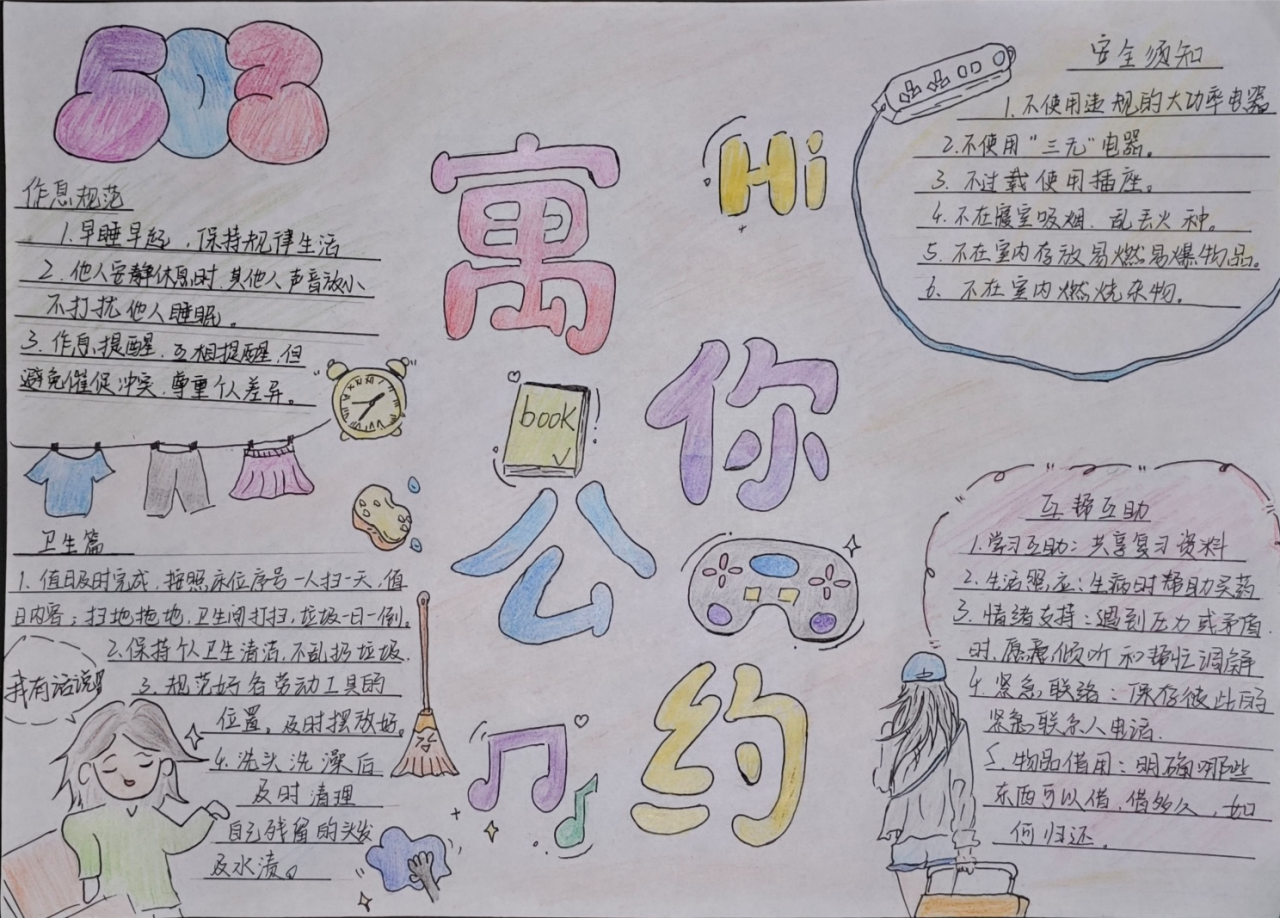 503
作息规范
1.早睡早起,保持规律生活
2.他人安静休息时,其他人声音放小
不打扰他人睡眠。
3.作息提醒,互相提醒,但
避免催促冲突,尊重个人差异。
卫生篇
1.值日及时完成,按照床位序号一人扫一天,值
日内容:扫地拖地,卫生间打扫,垃圾一日一倒。
2.保持个人卫生清洁,不乱扔垃圾.
3.规范好各劳动工具的
位置,及时摆放好。
4.洗头洗澡后
及时清理
自己残留的头发
及水渍。
我有话说!!
Hi
寓
你
book
公
约
安全须知
1.不使用违规的大功率电器
2.不使用“三无”电器。
3.不过载使用插座。
4.不在寝室吸烟、乱丢火种。
5.不在室内存放易燃易爆物品。
6.不在室内燃烧杂物。
互帮互助
1.学习互助:共享复习资料
2.生活照应:生病时帮助买药
3.情绪支持:遇到压力或矛盾
时,愿意倾听和帮忙调解
4.紧急联络:保存彼此的
紧急联系人电话.
5.物品借用:明确哪些
东西可以借,借多久,如
何归还.